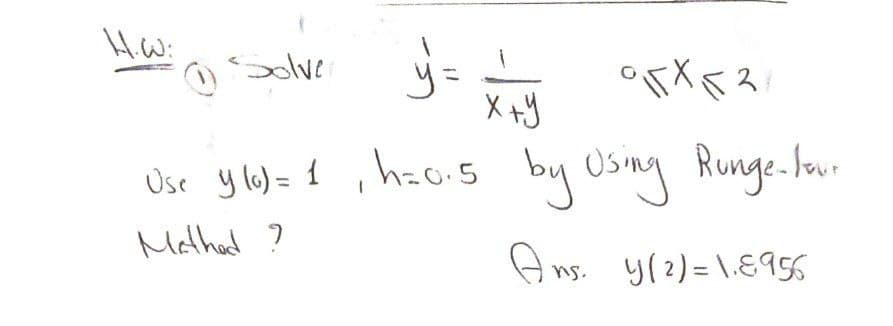 H.W:
① Solve y' = 1/(x+y) 0 ≤ x ≤ 2
Use y(0) = 1 , h=0.5 by Using Runge-
Method ?
Ans. y(2) = 1.8956